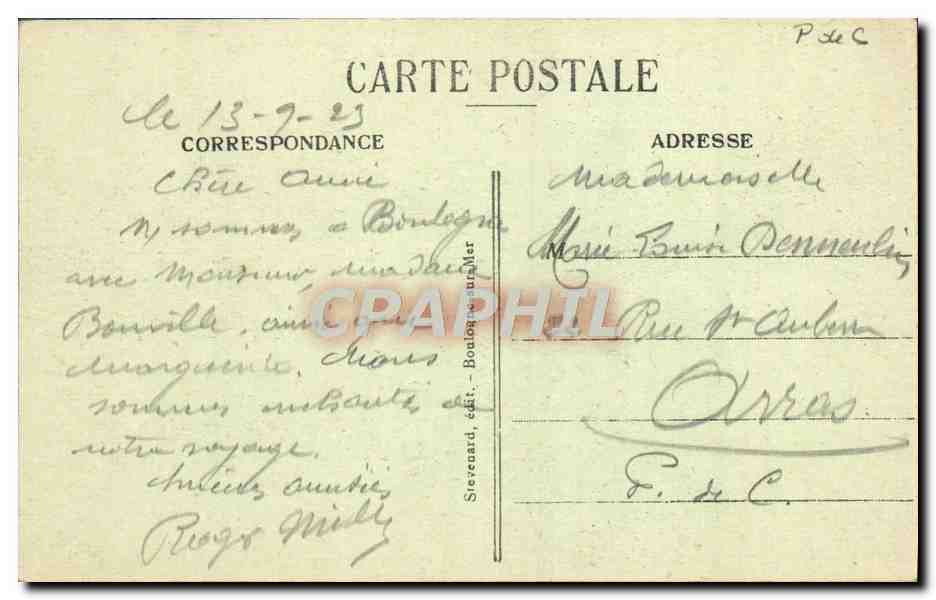 P de C
CARTE POSTALE
le 13-9-23
CORRESPONDANCE
Chère Amie
Ns sommes à Boulogne
avec Monsieur, Madame
Bonville, ainsi que
Marguerite. Nous
sommes enchantés de
notre voyage.
Amitiés
Roger
Stevenard, édit. - Boulogne-sur-Mer
ADRESSE
Mademoiselle
M Marie Louise
Rue St Aubert
Arras
P. de C.
CPAPHIL